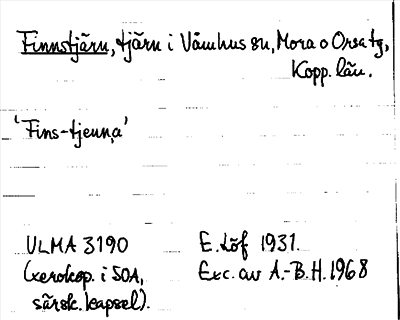 Finnstjärn, tjärn i Våmhus sn, Mora o Orsa tg,
Kopp. län.
'Fins-tjenṇa'
ULMA 3190
E. Löf 1931.
(xerokop. i SOA,
Exc. av A.-B. H. 1968
särsk. kapsel).